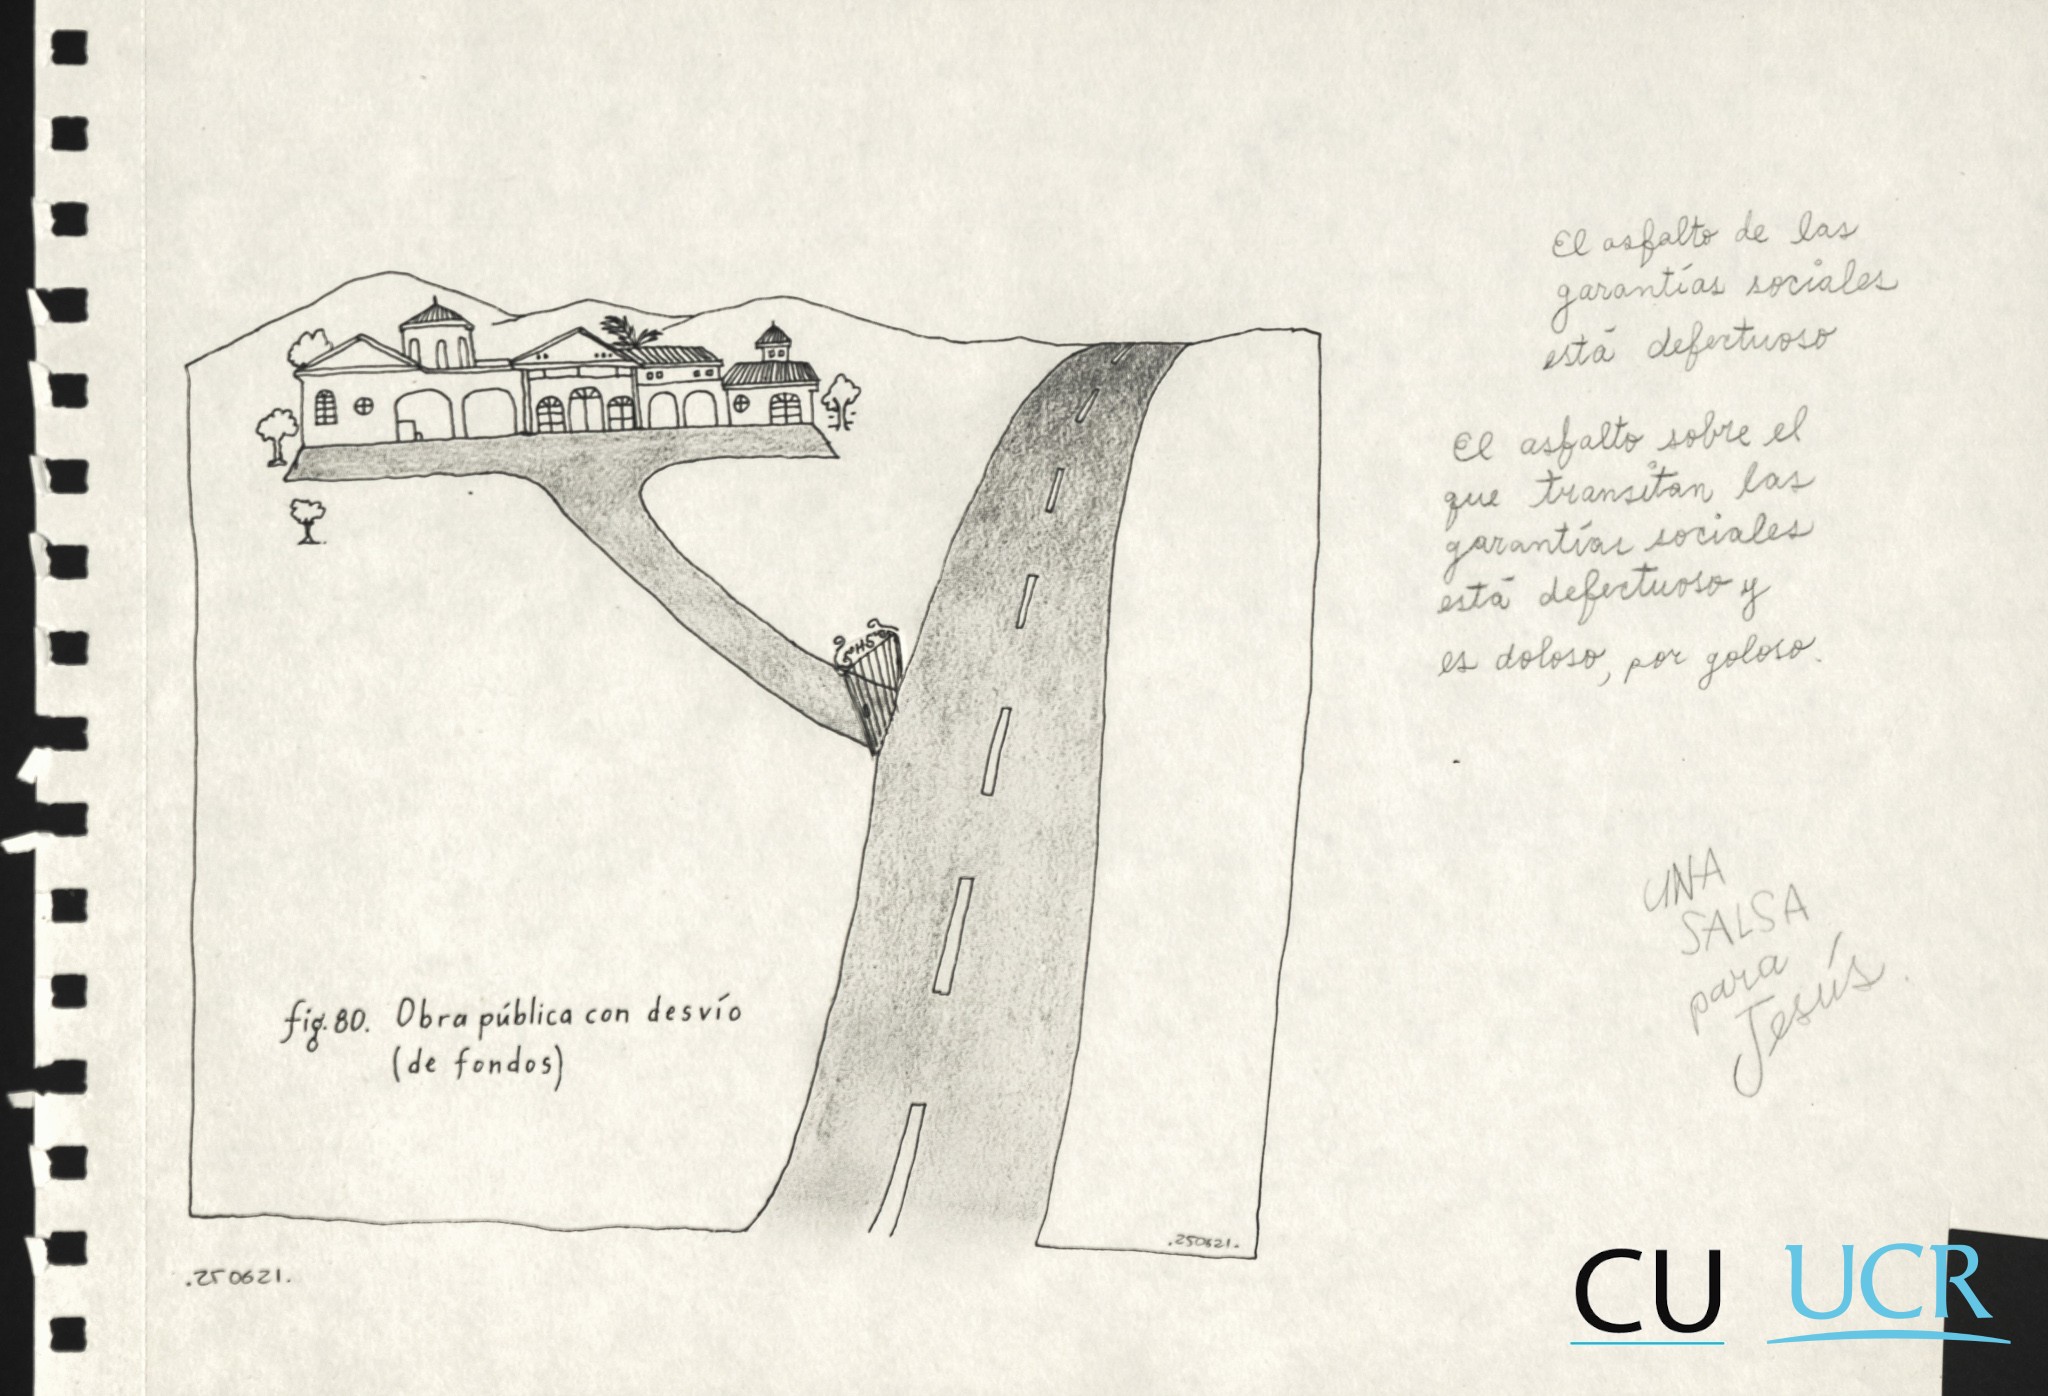 El asfalto de las
garantías sociales
está defectuoso
El asfalto sobre el
que transitan las
garantías sociales
está defectuoso y
es doloso, por goloso.
UNA
SALSA
para
Jesús.
fig.80. Obra pública con desvío
(de fondos)
.250621.
.250621.
CU UCR